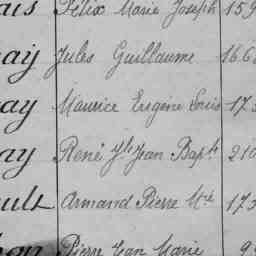 Félix Marie Joseph 159
Jules Guillaume 166
Maurice Eugène Louis 173
René Jh Jean Bapte 210
Armand Pierre Mie 173
Pierre Jean Marie 9